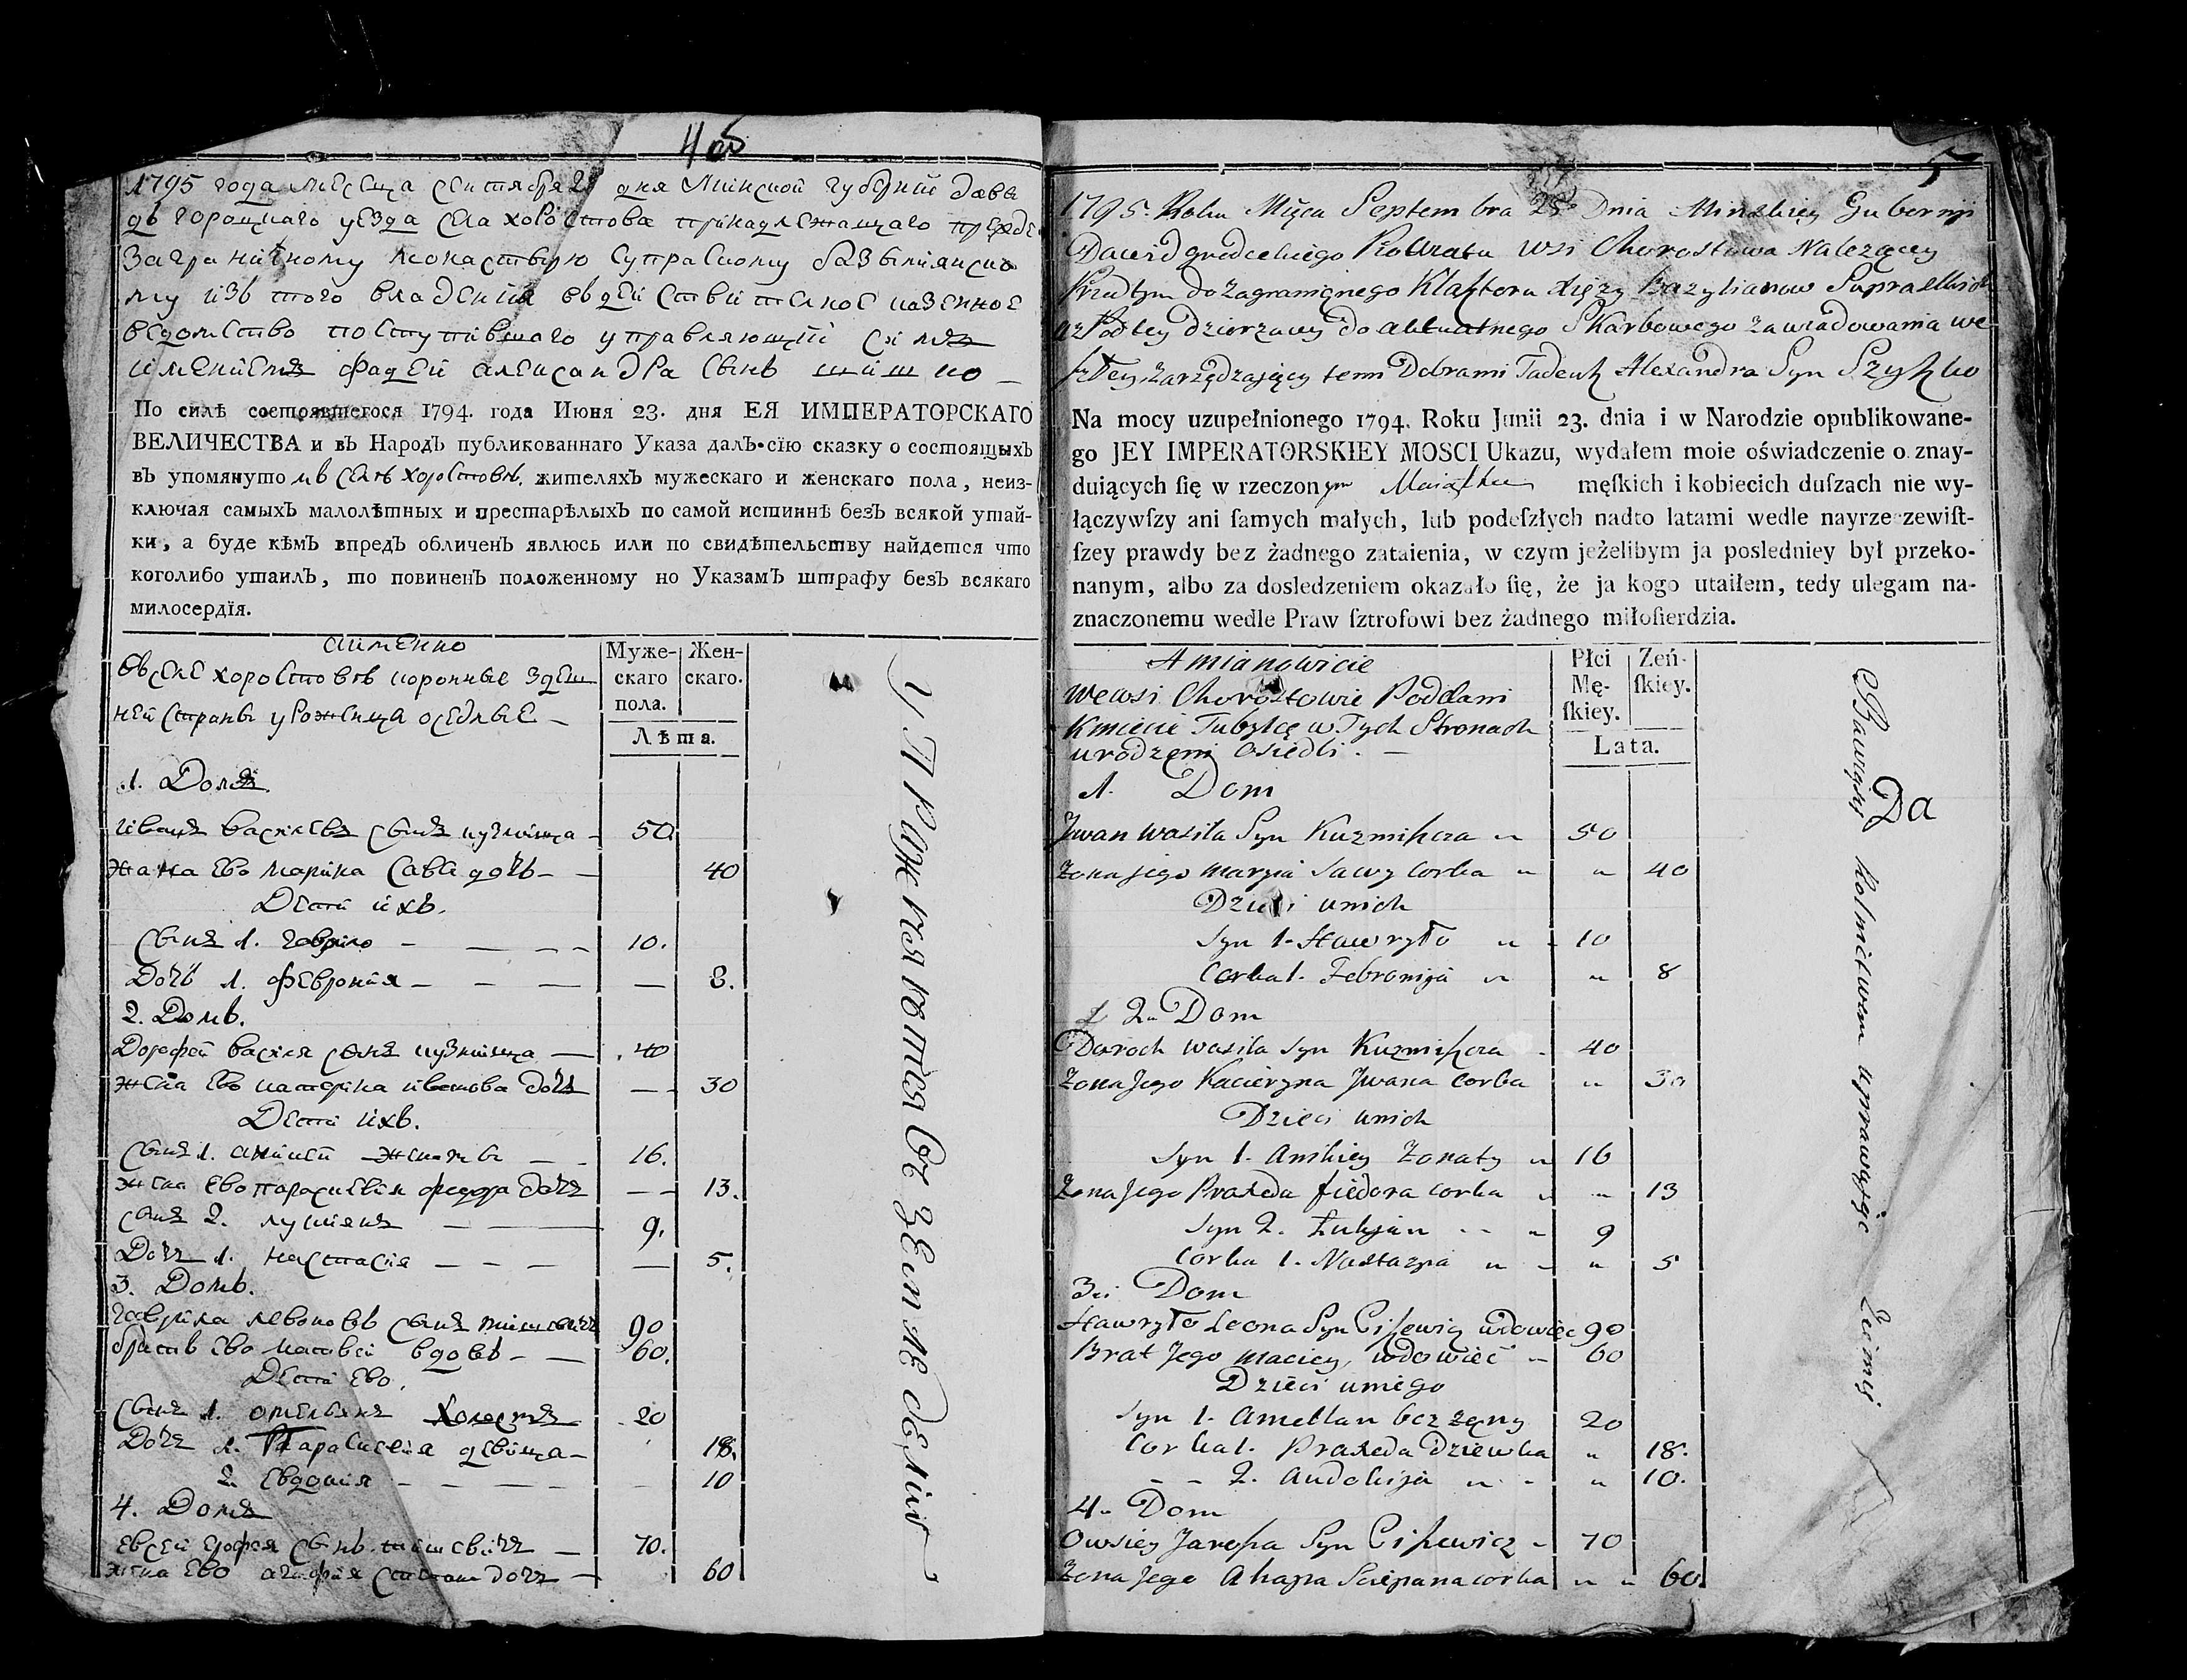 4 об
1795 года месеца сентября 25 дня Минской губернии даве
дъ городцкаго уезда села хоростова принадлежащаго прежде
заграничному монастырю супраслскому базылианско
му изъ того владения въ действителное казенное
ведомство поступившаго управляющий симъ
имениемъ фадей александра сынъ шишко
По силѣ состоявшегося 1794. года Июня 23. дня ЕЯ ИМПЕРАТОРСКАГО
ВЕЛИЧЕСТВА и въ Народъ публикованнаго Указа далъ сїю сказку о состоящыхъ
въ упомянутомъ селѣ хоростовѣ, жителяхъ мужескаго и женскаго пола, неиз-
ключая самыхъ малолѣтных и престарѣлыхъ по самой истиннѣ безъ всякой утай-
ки, а буде кѣмъ впредъ обличенъ явлюсь или по свидѣтельству найдется что
коголибо утаилъ, то повиненъ положенному по Указамъ штрафу безъ всякаго
милосердїя.
а именно
Муже-скаго пола. Жен-скаго.
Лѣта.
въ селе хоростовѣ коронные здеш
ней страны уроженца оседлые —
1. Домъ
иванъ васильевъ сынъ кузмища — 50
жана ево марина сава дочь — — 40
Дети ихъ.
сынъ 1. гаврило — — — — 10.
Дочь 1. феврония — — — — 8.
2. Домъ.
Дорофей василя сынъ кузмища — 40
жена ево катерина иванова дочъ — — 30
Дети ихъ.
сынъ 1. аникей женатъ — — 16.
жена ево параскевия федора дочъ — — 13.
сынъ 2. лукиянъ — — 9.
Дочъ 1. настасия — — — — 5.
3. Домъ.
гаврила левоновъ сынъ тишевичъ 90
братъ ево матвей вдовъ — — 60.
Дети ево.
сынъ 1. омельянъ холостъ 20
Дочъ 1. Параскевия девица — 18.
2. Евдокия — — — — 10
4. Домъ
евсей ерофея сынъ тишевичъ — 70.
жена ево агафия степана дочъ — 60
Упражняются въ земледелии
5
1795. Roku Mięca Septembra 25 Dnia Minskiey Gubernji
Dawidgrodeckiego Powiatu wsi Chorostowa Nalezącey
Przedtym do Zagranicznego Klasztoru Xięży Bazylianow Supraslskich
az Pod tey dzierzawy do aktualnego Skarbowego zawiadowania we
szłey, zarządzaiący temi Dobrami Tadeusz Alexandra Syn Szyszko
Na mocy uzupełnionego 1794. Roku Junii 23. dnia i w Narodzie opublikowane-
go JEY IMPERATORSKIEY MOSCI Ukazu, wydałem moie oświadczenie o znay-
duiących ſię w rzeczonym Maiątku męſkich i kobiecich duſzach nie wy-
łączywſzy ani ſamych małych, lub podeſzłych nadto latami wedle nayrzeczewiſt-
ſzey prawdy bez żadnego zataienia, w czym jeżelibym ja posledniey był przeko-
nanym, albo za dosledzeniem okazało ſię, że ja kogo utaiłem, tedy ulegam na-
znaczonemu wedle Praw ſztrofowi bez żadnego miłoſierdzia.
Amianowicie
Płci Mę-ſkiey. Zeń-ſkiey.
Lata.
we wsi Chorostowie Poddani
Kmiecie Tubylcę w Tych Stronach
urodzeni osiedli. —
1. Dom
Jwan Wasila Syn Kuzmiszcza „ 50
Zona jego maryia Sawy corka „ „ 40
Dzieci unich
Syn 1. Hawryło „ 10
Corka 1. Febronija „ „ 8
2. Dom
Doroch wasila Syn Kuzmiszcza - 40
Zona Jego Kacieryna Jwana corka „ 30
Dzieci unich
Syn 1. Anikiey Zonaty „ 16
Zona Jego Praxeda fiedora corka „ „ 13
Syn 2. Łukjan - - „ 9
Corka 1. Nastazyia „ - „ 5
3. Dom
Hawryło Leona Syn Ciszewicz wdowiec 90
Brat Jego maciey, wdowiec „ 60
Dzieci uniego
Syn 1. Amelian bez żęny 20
Corka 1. Praxeda Dziewka „ 18.
- - 2. Audokija „ - „ 10.
4. Dom
Owsiey Jarosza Syn Ciszewicz - 70
Zona Jego Ahapa Sciepana corka „ „ 60
Da
Bawięsię Rolnictwem uprawuiąc Ziemię